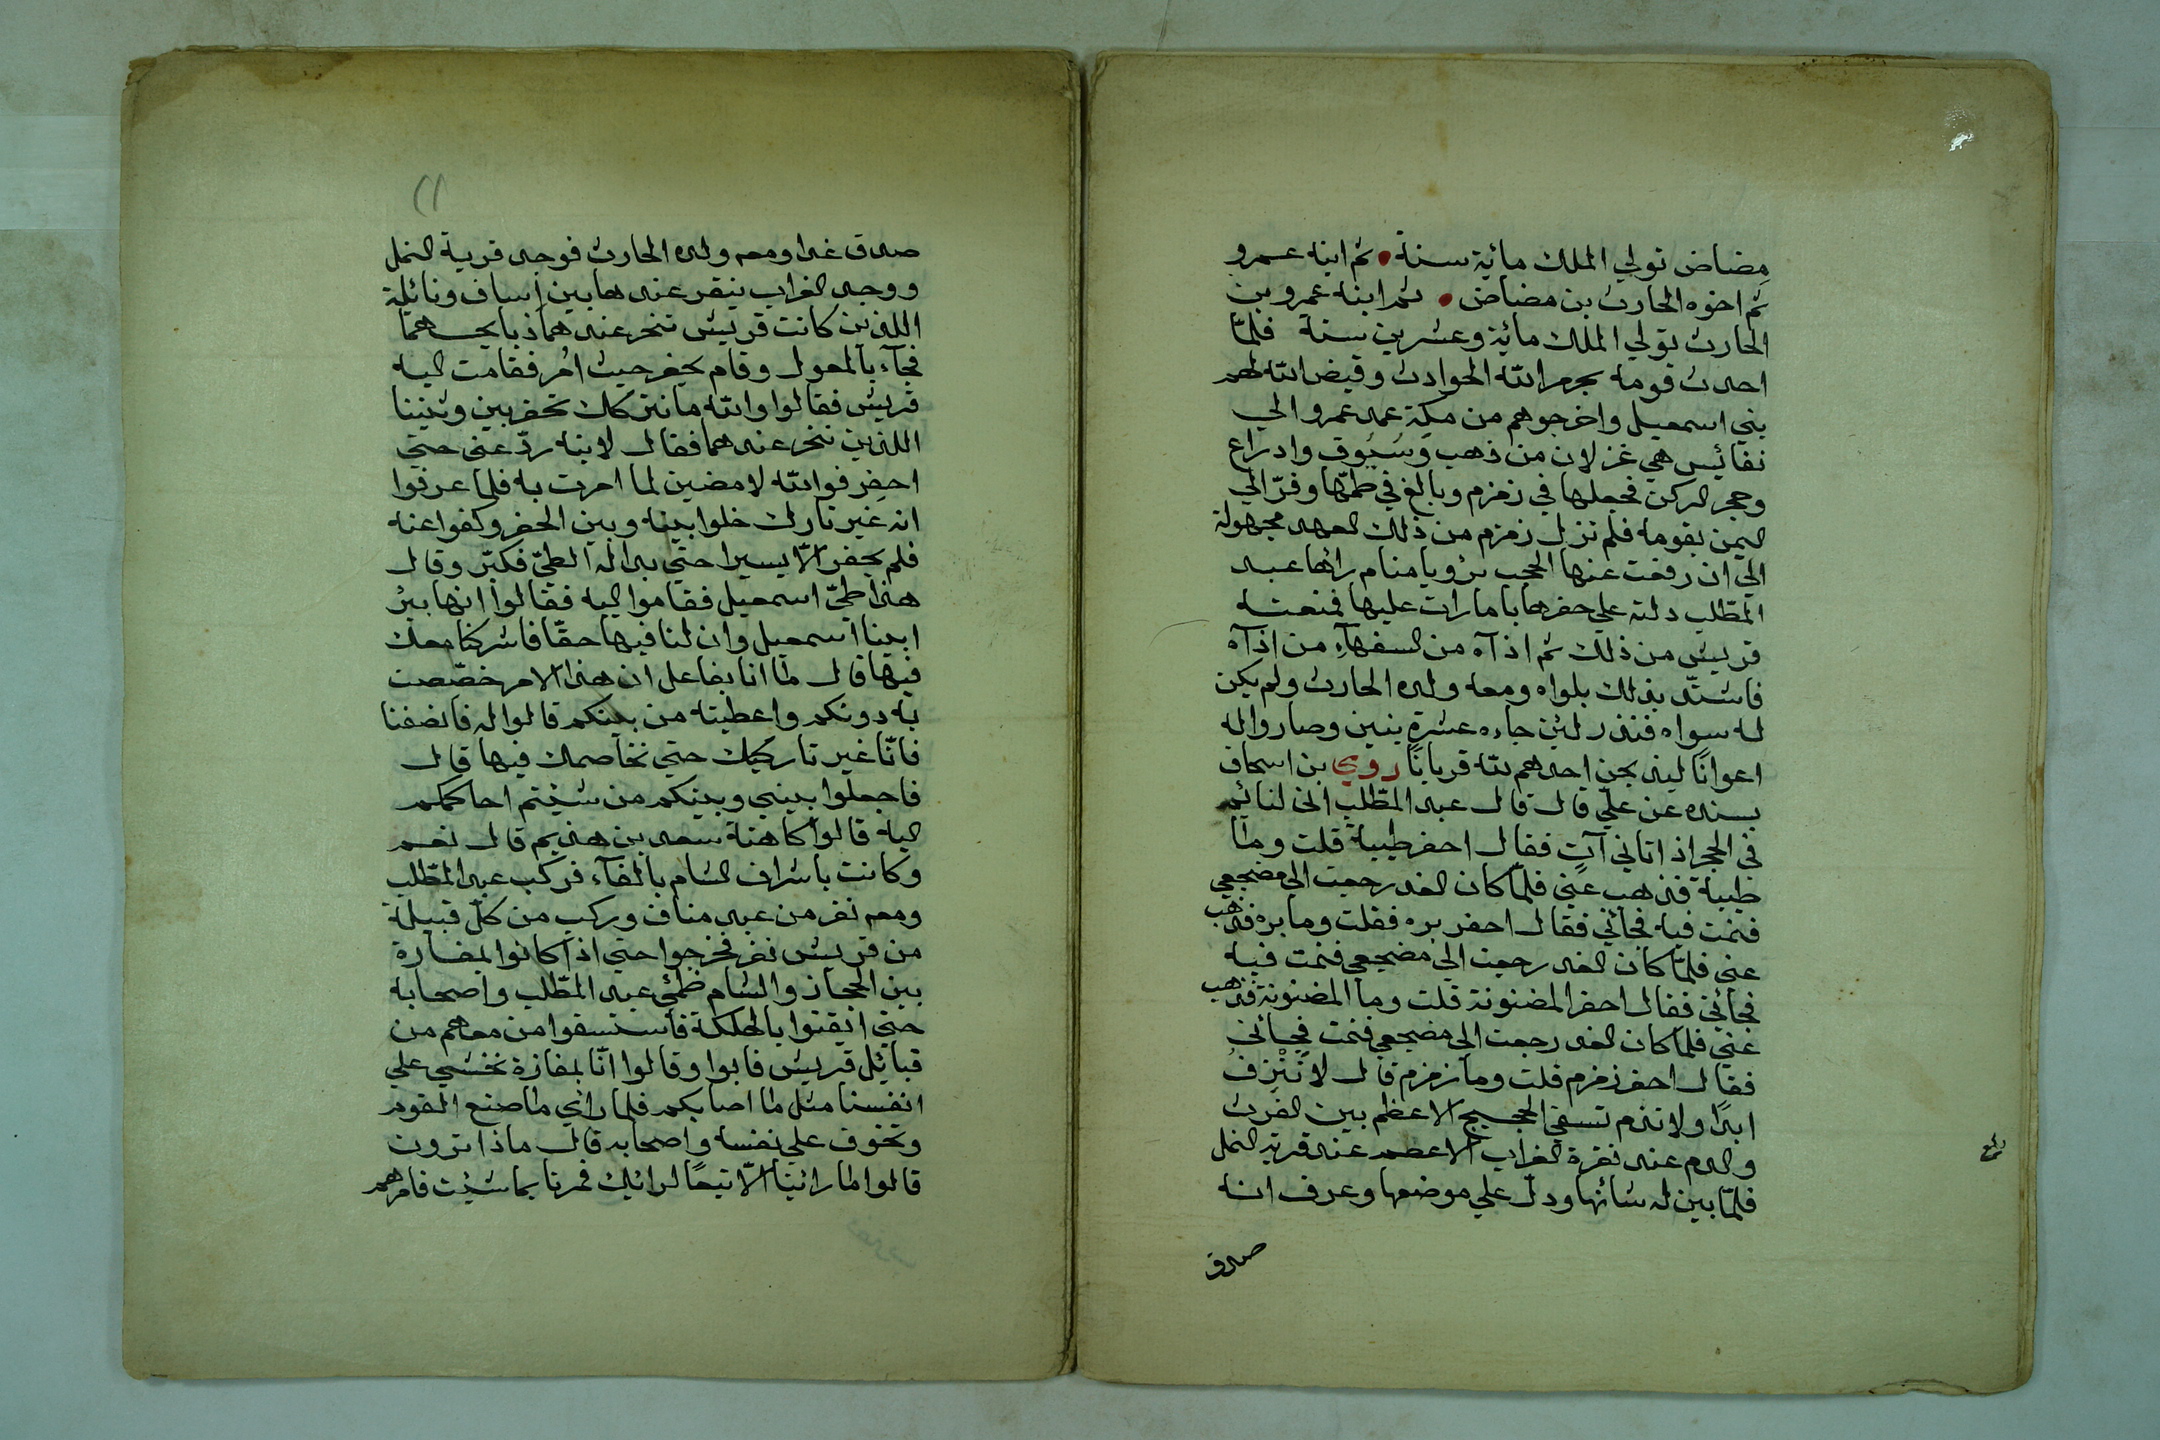 مضاض تولي الملك مائية سنة • ثم ابنه عمرو
ثم اخوه الحارث بن مضاض • ثم ابنه عمرو بن
الحارث تولي الملك مائية وعشرين سنة فلمّا
احدث قومه بحرم الله الحوادث وقيض الله لهم
بني اسمعيل واخرجوهم من مكة عمد عمرو الي
نفائيس هي غزلان من ذهب وسُيُوف وادراع
وحجر الركن فجعلها في زمزم وبالغ في طمّها وفرّ الي
اليمن بقومه فلم تزل زمزم من ذلك العهد مجهولة
الي ان رفعت عنها الحجب برؤيا منام رأها عبد
المطّلب دلته علي حفرها بامارات عليها فمنعته
قريش من ذلك ثم اذآه من السفهآء من اذآه
فاشتد بذلك بلواه ومعه ولده الحارث ولم يكن
له سواه فنذر لئن جاءه عشرة بنين وصاروا له
اعوانًا ليذبحن احدهم لله قربانًا روي بن اسحاق
بسنده عن علي قال قال عبد المطّلب اني لنائم
في الحجر اذ اتاني آتٍ فقال احفر طيبة قلت وما
طيبة فذهب عنّي فلمّا كان الغد رجعت الي مضجعي
فنمت فيه فجائني فقال احفر بره فقلت وما بره فذهب
عني فلمّا كان الغد رجعت الي مضجعي فنمت فيه
فجائني فقال احفر المضنونة قلت وما المضنونة فذهب
عني فلمّا كان الغد رجعت الي مضجعي فنمت فجائني
فقال احفر زمزم قلت وما زمزم قال لا تَنْزِفُ
ابدًا ولا تذم تسقي الحجيج الاعظم بين الفرث
والدم عند نقرة الغراب الاعصم عند قرية النمل
فلمّا بين له شانها ودلّ علي موضعها وعرف انه
صدق
١١
صدق غدا ومعه ولده الحارث فوجد قرية النمل
ووجد الغراب ينقر عندها بين إساف ونائلة
اللذين كانت قريش تنحر عندهما ذبايحهما
فجآء بالمعول وقام يحفر حيث اُمر فقامت اليه
قريش فقالوا والله ما نتركك تحفر بين وثنينا
اللذين ننحر عندهما فقال لابنه ردّ عني حتي
احفر فوالله لامضين لما امرت به فلما عرفوا
انه غير تارك خلوا بينه وبين الحفر وكفوا عنه
فلم يحفر الّا يسيرا حتي بدا له الطيّ فكبّر وقال
هذا طيّ اسمعيل فقاموا اليه فقالوا انها بئر
ابينا اسمعيل وان لنا فيها حقّا فاشركنا معك
فيها قال ما انا بفاعل ان هذا الامر خصّصت
به دونكم واعطيته من بينكم قالوا له فانصفنا
فانّا غير تاركيك حتي نخاصمك فيها قال
فاجعلوا بيني وبينكم من شئتم احاكمكم
اليه قالوا كاهنة سعد بن هذيم قال نعم
وكانت باشراف الشام بالفآء فركب عبد المطّلب
ومعه نفر من عبد مناف وركب من كلّ قبيلة
من قريش نفر فخرجوا حتي اذا كانوا بمفازة
بين الحجاز والشام ظمئي عبد المطّلب واصحابه
حتي ايقنوا بالهلكة فاستسقوا من معاهم من
قبائل قريش فابوا وقالوا انّا بمفازة نخشي علي
انفسنا مثل ما اصابكم فلما رائي ما صنع القوم
وتخوف علي نفسه واصحابه قال ماذا ترون
قالوا ما رائينا الّا تبعًا لرائيك فمرنا بما شئت فامرهم